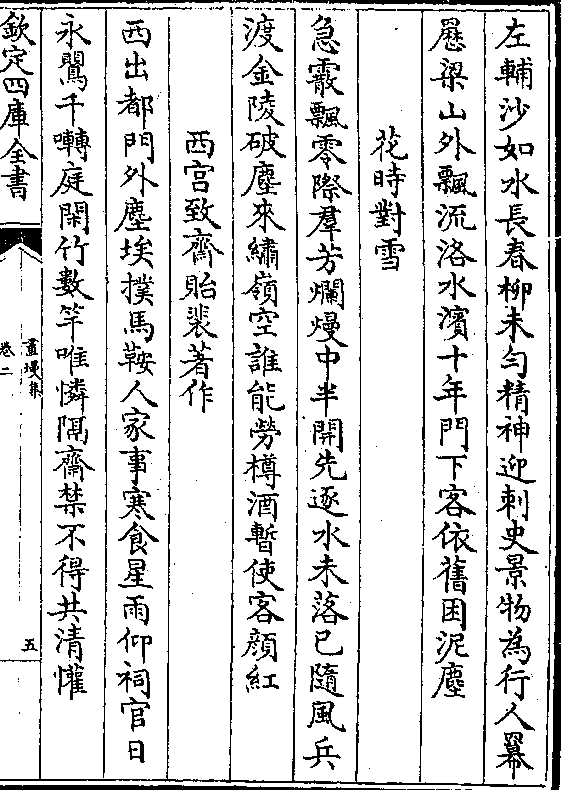 左輔沙如水長春柳未勻精神迎刺史景物為行人冪
歷梁山外飄流洛水濱十年門下客依舊困泥塵
花時對雪
急霰飄零際羣芳爛熳中半開先逐水未落已隨風兵
渡金陵破塵來繡嶺空誰能勞樽酒暫使客顔紅
西宫致齋貽裴著作
西出都門外塵埃撲馬鞍人家事寒食星雨仰祠官日
永鸎千囀庭閑竹數竿唯憐隔齋禁不得共清懽
欽定四庫全書
畫墁集
卷二
五